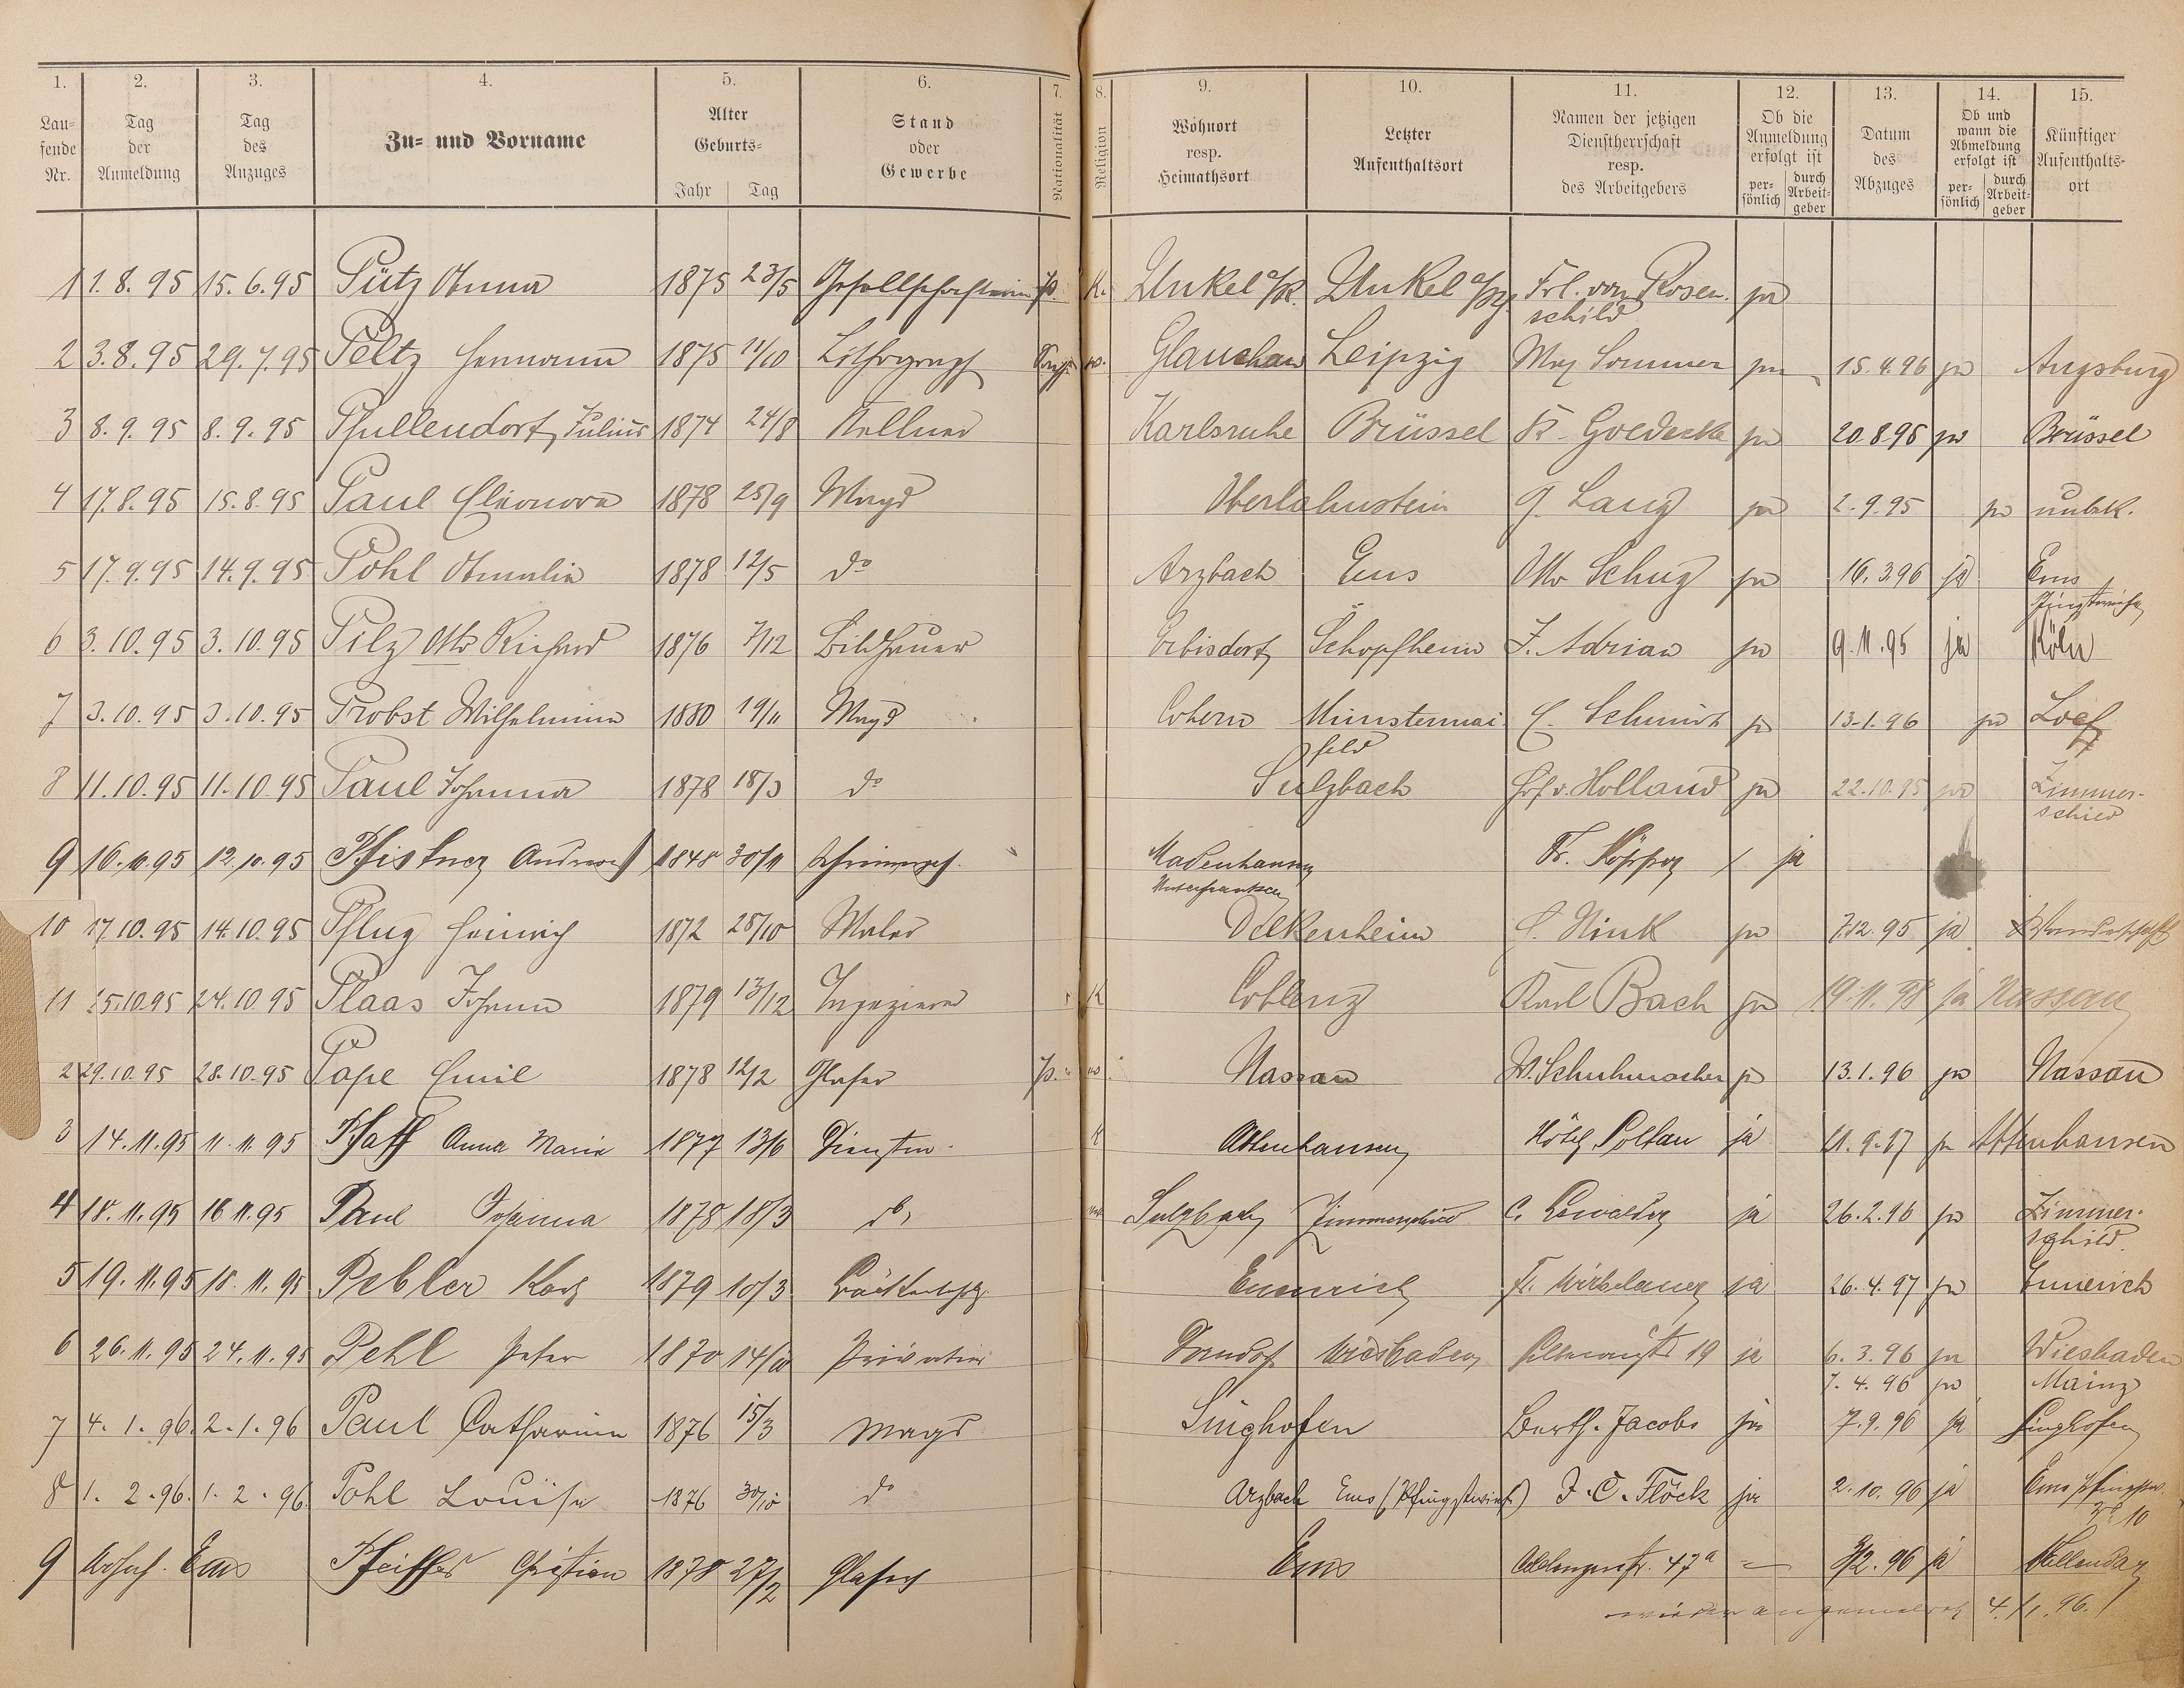 1. 2. 3. 4. 5. 6. 7. 8. 9. 10. 11. 12. 13. 14. 15.
Lau-
sende
Nr.
Tag
der
Anmeldung
Tag
des
Anzuges
Zu- und Vorname
Alter
Geburts-
Jahr Tag
Stand
oder
Gewerbe
Nationalität
Religion
Wohnort
resp.
Heimathsort
Letzter
Aufenthaltsort
Namen der jetzigen
Dienstherrschaft
resp.
des Arbeitgebers
Ob die
Anmeldung
erfolgt ist
per-
sönlich
durch
Arbeit-
geber
Datum
des
Abzuges
Ob und
wann die
Abmeldung
erfolgt ist
per-
sönlich
durch
Arbeit-
geber
Künftiger
Aufenthalts-
ort
1 1. 8. 95 15. 6. 95 Pütz Anna 1875 23/5 Gesellschafterin P. K. Unkel a/R. Unkel a/R. Frl. von Rosen- ja
schild
2 3. 8. 95 29. 7. 95 Peltz Hermann 1875 11/10 Lithograph Glauchau Leipzig Max Sommer ja 15. 4. 96 ja Augsburg
3 8. 9. 95 8. 9. 95 Pfullendorf, Julius 1874 24/8 Kellner Karlsruhe Brüssel Fr. Goedecke ja 20. 8. 96 ja Brüssel
4 17. 8. 95 15. 8. 95 Paul Eleonora 1878 25/9 Magd Oberlahnstein G. Lang ja 2. 9. 95 ja unbk.
5 17. 9. 95 14. 9. 95 Pohl Amalia 1878 12/5 do Arzbach Ems Otto Schug ja 16. 3. 96 ja Ems
Pfingstwiese
6 3. 10. 95 3. 10. 95 Pilz Otto Richard 1876 7/12 Bildhauer Erbisdorf Schopfheim J. Adrian ja 9. 11. 95 ja Köln
7 3. 10. 95 3. 10. 95 Probst Wilhelmina 1880 19/11 Magd Cobern Münstermai- C. Schmidt ja 13. 1. 96 ja Loef
feld
8 11. 10. 95 11. 10. 95 Paul Johanna 1878 18/3 do Sulzbach Hof v. Holland ja 22. 10. 95 ja Zimmer-
schied
9 16. 10. 95 12. 10. 95 Pfistner Andreas 1848 30/11 Madenhausen Fr. ja
Unterfranken
10 17. 10. 95 14. 10. 95 Pflug Heinrich 1872 28/10 Maler Delkenheim C. Hink ja 7. 12. 95 ja Wanderschaft
11 25. 10. 95 24. 10. 95 Plaas Johann 1879 13/12 Tapezierer K Coblenz Karl Bach ja 19. 11. 98 ja Nassau
2 29. 10. 95 28. 10. 95 Pape Emil 1878 12/2 Glaser P. Nassau W. Schuhmacher ja 13. 1. 96 ja Nassau
3 14. 11. 95 11. 11. 95 Pfaff Anna Maria 1877 13/6 K Attenhausen Hôtel ja 11. 9. 97 ja Attenhausen
4 18. 11. 95 16. 11. 95 Paul Johanna 1878 18/3 do, Sulzbach Zimmerschied C. ja 26. 2. 96 ja Zimmer-
schied.
5 19. 11. 95 18. 11. 95 Pebler Karl 1879 10/3 Emmerich Fr. ja 26. 4. 97 ja Emmerich
6 26. 11. 95 24. 11. 95 Pehl Peter 1870 Privatier Wiesbaden 19 ja 6. 3. 96 ja Wiesbaden
7. 4. 96 ja Mainz
7 4. 1. 96. 2. 1. 96 Paul Catharina 1876 15/3 Magd Singhofen Berth. Jacobs ja 7. 9. 96 ja Singhofen
8 1. 2. 96. 1. 2. 96 Pohl Louise 1876 30/10 do Arzbach Ems (Pfingstwiese) J. C. Flöck ja 2. 10. 96 ja Ems Pfingstw.
No 10
9 Ems Pfeiffer Christian 1878 27/2 Glaser Ems 47a — 3/2. 96 ja Vallendar
wieder angemeldet 4./1. 96.